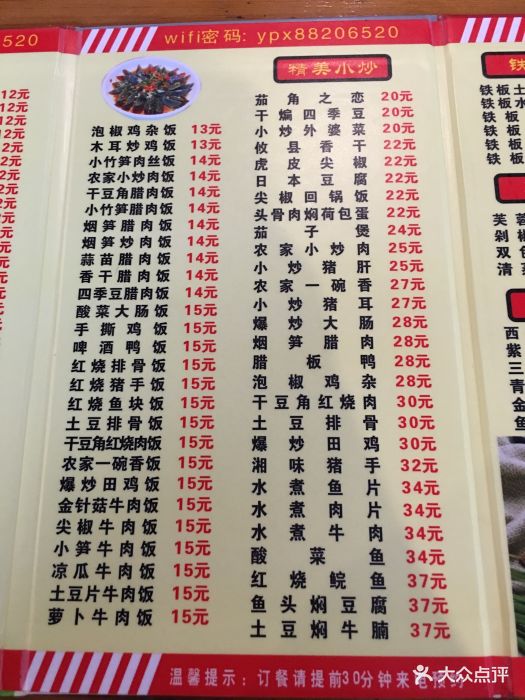 520
wifi密码: ypx88206520
12元
12元
12元
12元
12元
12元
12元
泡椒鸡杂饭 13元
木耳炒鸡饭 13元
小竹笋肉丝饭 14元
农家小炒肉饭 14元
干豆角腊肉饭 14元
小竹笋腊肉饭 14元
烟笋腊肉饭 14元
烟笋炒肉饭 14元
蒜苗腊肉饭 14元
香干腊肉饭 14元
四季豆腊肉饭 14元
酸菜大肠饭 15元
手撕鸡饭 15元
啤酒鸭饭 15元
红烧排骨饭 15元
红烧猪手饭 15元
红烧鱼块饭 15元
土豆排骨饭 15元
干豆角红烧肉饭 15元
农家一碗香饭 15元
爆炒田鸡饭 15元
金针菇牛肉饭 15元
尖椒牛肉饭 15元
小笋牛肉饭 15元
凉瓜牛肉饭 15元
土豆片牛肉饭 15元
萝卜牛肉饭 15元
精美小炒
茄角之恋 20元
干煸四季豆 20元
小炒外婆菜 20元
攸县香干 22元
虎皮尖椒 22元
日本豆腐 22元
尖椒回锅饭 22元
头骨肉焖荷包蛋 22元
茄子煲 24元
农家小炒肉 25元
小炒猪肝 25元
农家一碗香 27元
小炒猪耳 27元
爆炒大肠 28元
烟笋腊肉 28元
腊板鸭 28元
泡椒鸡杂 28元
干豆角红烧肉 30元
土豆排骨 30元
爆炒田鸡 30元
湘味猪手 32元
水煮鱼片 34元
水煮肉片 34元
水煮牛肉 34元
酸菜鱼 34元
红烧鲩鱼 37元
鱼头焖豆腐 37元
土豆焖牛腩 37元
铁
铁板土
铁板
铁板
铁板
铁板
芙蓉
剁椒
双色
清
西
紫
三
青
金
鱼
温馨提示: 订餐请提前30分钟来
大众点评